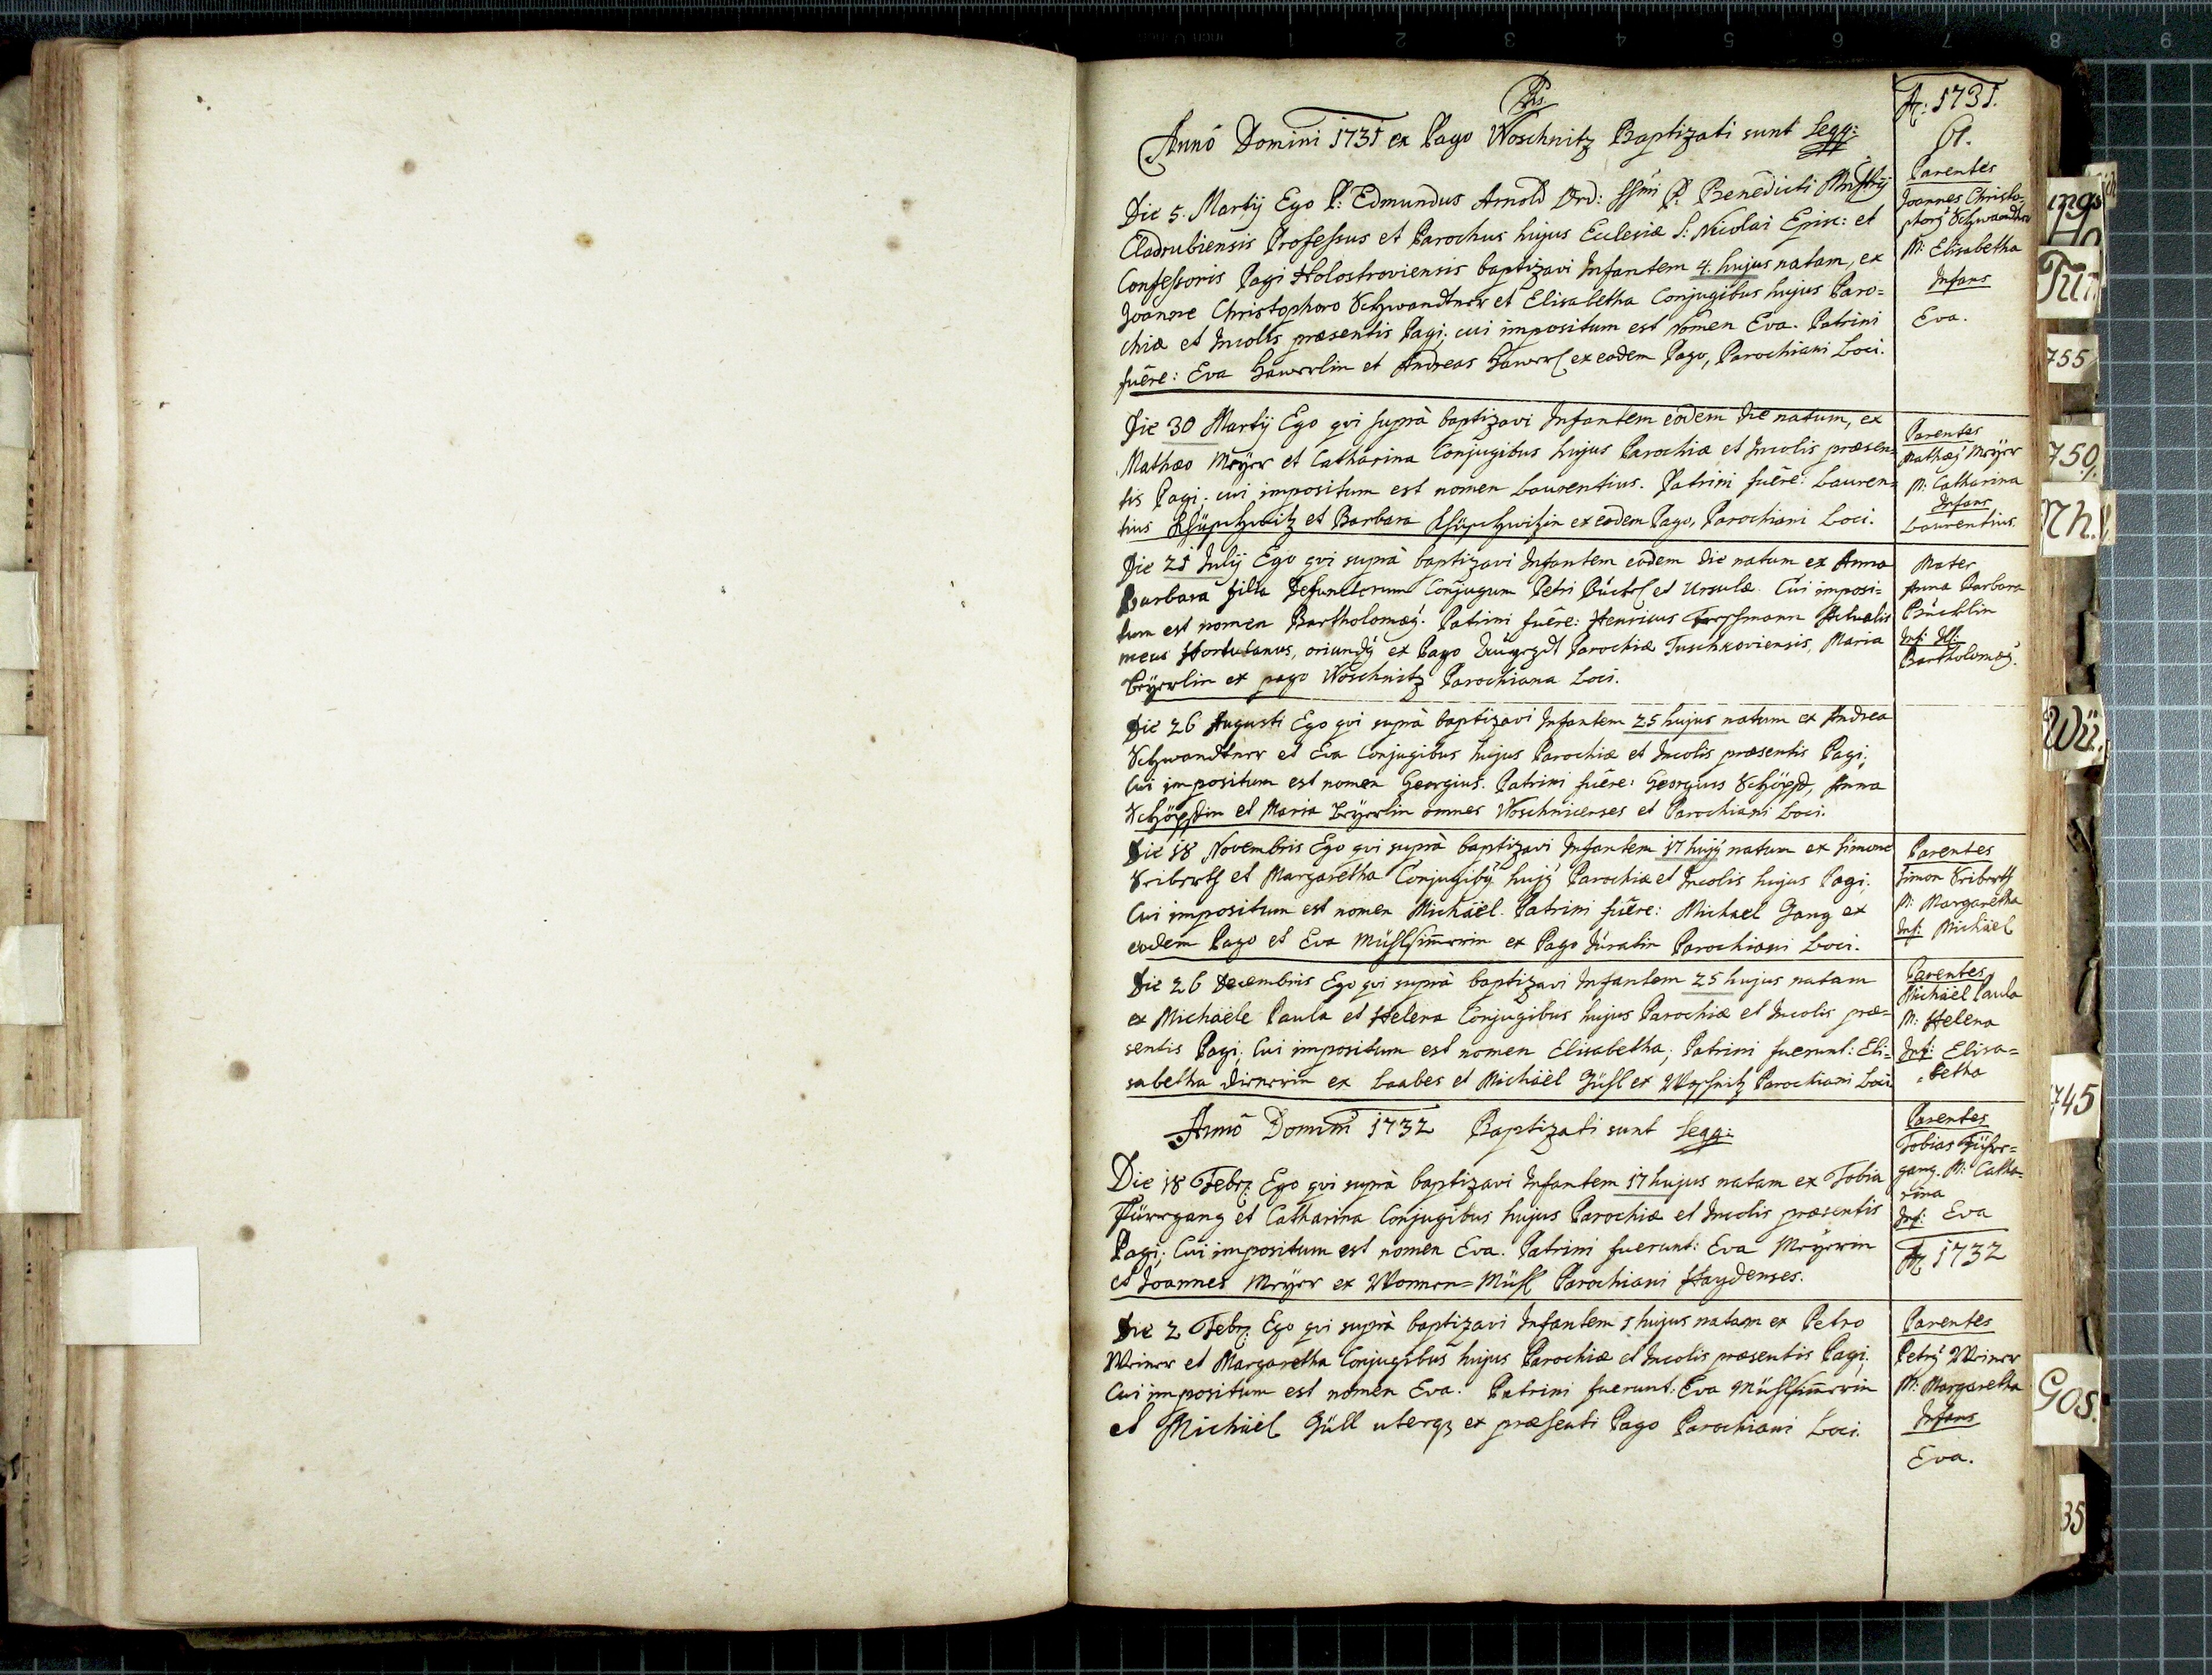 Annô Domini 1731 ex Pago Woschnitz Baptizati sunt seqq:
Die 5. Martij Ego P. Edmundus Arnold Ord: SSmi P. Benedicti Mnstrij
Cladrubiensis Professus et Parochus hujus Ecclesiæ S. Nicolai Episc: et
Confessoris Pagi Holostroviensis baptizavi Infantem 4. hujus natam, ex
Joanne Christophoro Schwandtner et Elisabetha Conjugibus hujus Paro=
chiæ et Incolis præsentis Pagi; cui impositum est nomen Eva. Patrini
fuêre: Eva et Andreas ex eodem Pago, Parochiani Loci.
Die 30 Martij Ego qvi suprà baptizavi Infantem eôdem die natum, ex
Mathæo Meÿer et Catharina Conjugibus hujus Parochiæ et Incolis præsen=
tis Pagi; cui impositum est nomen Laurentius. Patrini fuêre: Lauren=
tius et Barbara ex eodem Pago, Parochiani Loci.
Die 21 Julij Ego qvi suprà baptizavi Infantem eôdem die natum ex Anna
Barbara filia Defunctorum Conjugum Petri et Ursulæ. Cui imposi=
tum est nomen Bartholomæ9. Patrini fuêre: Henricus Actualis
meus Hortulanus, oriund9 ex Pago Parochiæ Tuschkoviensis, Maria
Beÿerlin ex pago Woschnitz Parochiana Loci.
Die 26 Augusti Ego qvi suprà baptizavi Infantem 25 hujus natum ex Andrea
Schwandtner et Eva Conjugibus hujus Parochiæ et Incolis præsentis Pagi;
Cui impositum est nomen Georgius. Patrini fuêre: Georgius Anna
et Maria Beÿerlin omnes Woschnicenses et Parochiani Loci.
Die 18 Novembris Ego qvi suprà baptizavi Infantem 17 huj9 natum ex Simone
Seiberth et Margaretha Conjugib9 huj9 Parochiæ et Incolis hujus Pagi;
Cui impositum est nomen Michäel. Patrini fuêre: Michael Gang ex
eodem Pago et Eva ex Pago Parochiani Loci.
Die 26 Decembris Ego qvi suprà baptizavi Infantem 25 hujus natam
ex Michäele Paula et Helena Conjugibus hujus Parochiæ et Incolis præ=
sentis Pagi; Cui impositum est nomen Elisabetha; Patrini fuerunt: Eli=
sabetha ex et Michäel ex Parochiani Loci
Annô Domini 1732 Baptizati sunt seqq:
Die 18 Febr: Ego qvi suprà baptizavi Infantem 17 hujus natam ex Tobia
et Catharina Conjugibus hujus Parochiæ et Incolis præsentis
Pagi; Cui impositum est nomen Eva. Patrini fuerunt: Eva Meÿerin
et Joannes Meÿer ex Parochiani Haydenses.
Die 2 Febr: Ego qvi suprà baptizavi Infantem 1 hujus natam ex Petro
Weiner et Margaretha Conjugibus hujus Parochiæ et Incolis præsentis Pagi;
Cui impositum est nomen Eva. Patrini fuerunt: Eva
et Michäel Güll uterqz ex præsenti Pago Parochiani Loci.
A: 1731.
Parentes
Joannes Christo=
phor9 Schwandtner
M: Elisabetha
Infans
Eva.
Parentes
Mathæ9 Meÿer
M: Catharina
Infans
Laurentius.
Mater
Anna Barbara
Bücklin
Inf: Ill:
Bartholomæ9.
Parentes
Simon Seiberth
M: Margaretha
Inf: Michäel
Parentes
Michäel Paula
M: Helena
Inf: Elisa=
=betha
Parentes
Tobias
gang. M: Catha=
rina
Inf: Eva
A: 1732
Parentes
Petr9 Weiner
M: Margaretha
Infans
Eva.
755
750
Wü.
745
Gos.
35